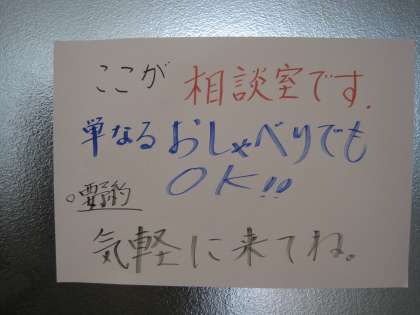 ここが 相談室です.
単なるおしゃべりでも
OK!!
。要予約
気軽に来てね。